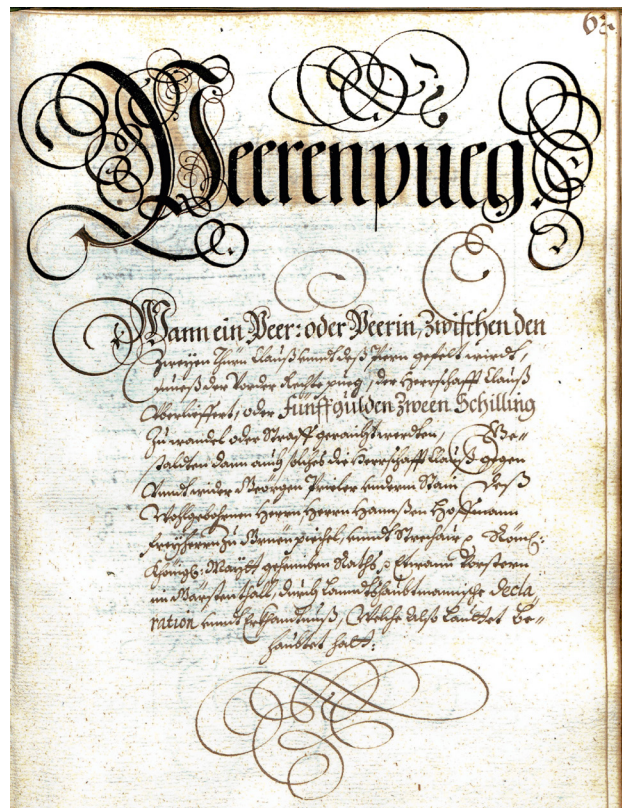 63
Peerenpueg.
Wann ein Peer: oder Peerin, Zwischen den
Zweyen Thürn Clauß vnndt deß Piern gefelt wierdt,
mueß der Vorder Rechte pueg, der Herrschafft Clauß
Vberlüffert, oder Fünff gulden Zween Schilling
Zu wandel oder Straff geraicht werdten, Be„
staldten dann auch solches die Herrschafft Clauß gegen
Vnndt wider Georgen Prieler vnderm Stain Deß
Wohlgebohrnen Herrn, Herrn Hannßen Hoffmann
Freyherrn Zu Grüenpichel, vnndt Strechair p Röm:
Khönigl: Mayst: gehaimben Raths, p Etwann Vorstern
im Garstenthall, durch Lanndtshaubtmannische Decla„
ration vnndt Erkhandtnuß, Welche Alßo Lauttet Be„
haubtet hatt: